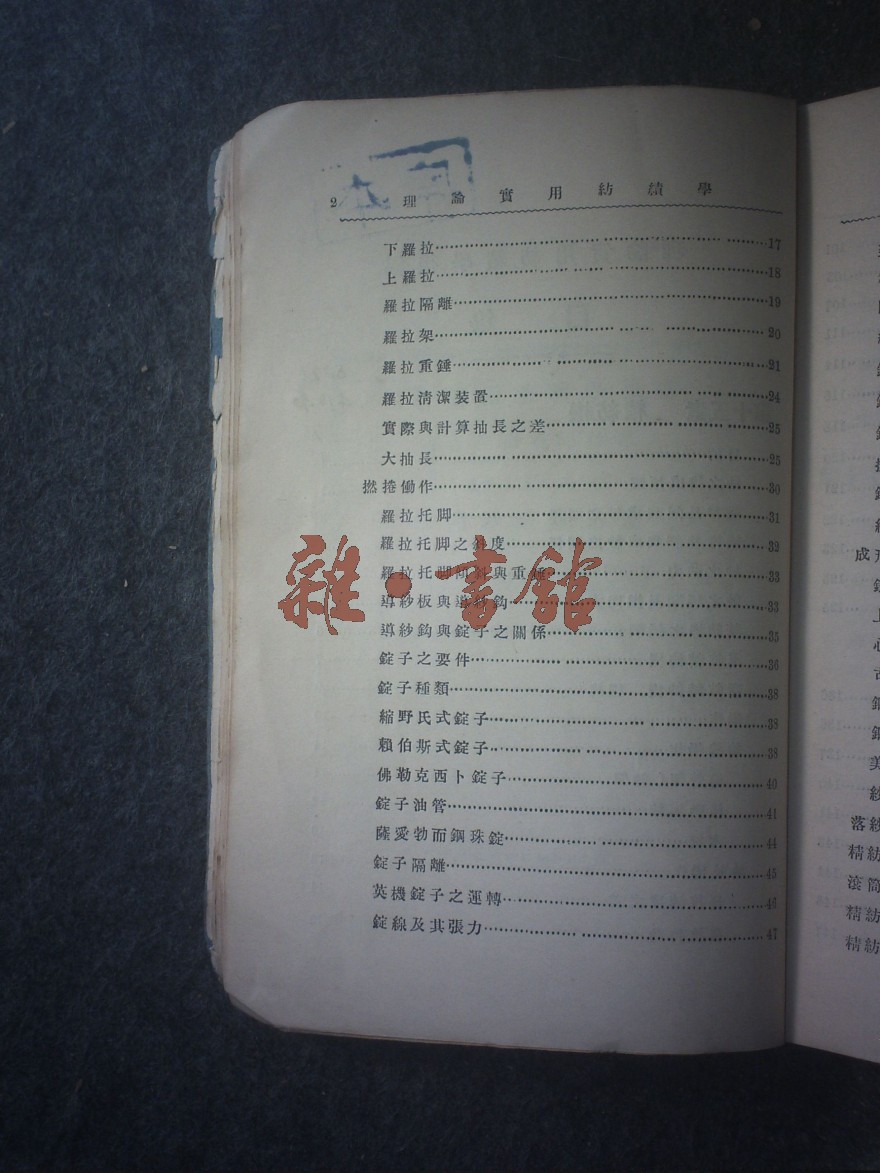 2 理論實用紡績學
下羅拉……17
上羅拉……18
羅拉隔離……19
羅拉架……20
羅拉重錘……21
羅拉清潔装置……24
實際與計算抽長之差……25
大抽長……25
撚捲働作……30
羅拉托脚……31
羅拉托脚之斜度……32
羅拉托脚傾斜與重錘……33
導紗板與導紗鈎……33
導紗鈎與錠子之關係……35
錠子之要件……36
錠子種類……38
縮野氏式錠子……38
賴伯斯式錠子……38
佛勒克西卜錠子……40
錠子油管……41
薩愛勃而鋼珠錠……44
錠子隔離……45
英機錠子之運轉……46
錠線及其張力……47
雜·書館
成
落紗
精紡
滚筒
精紡
精紡